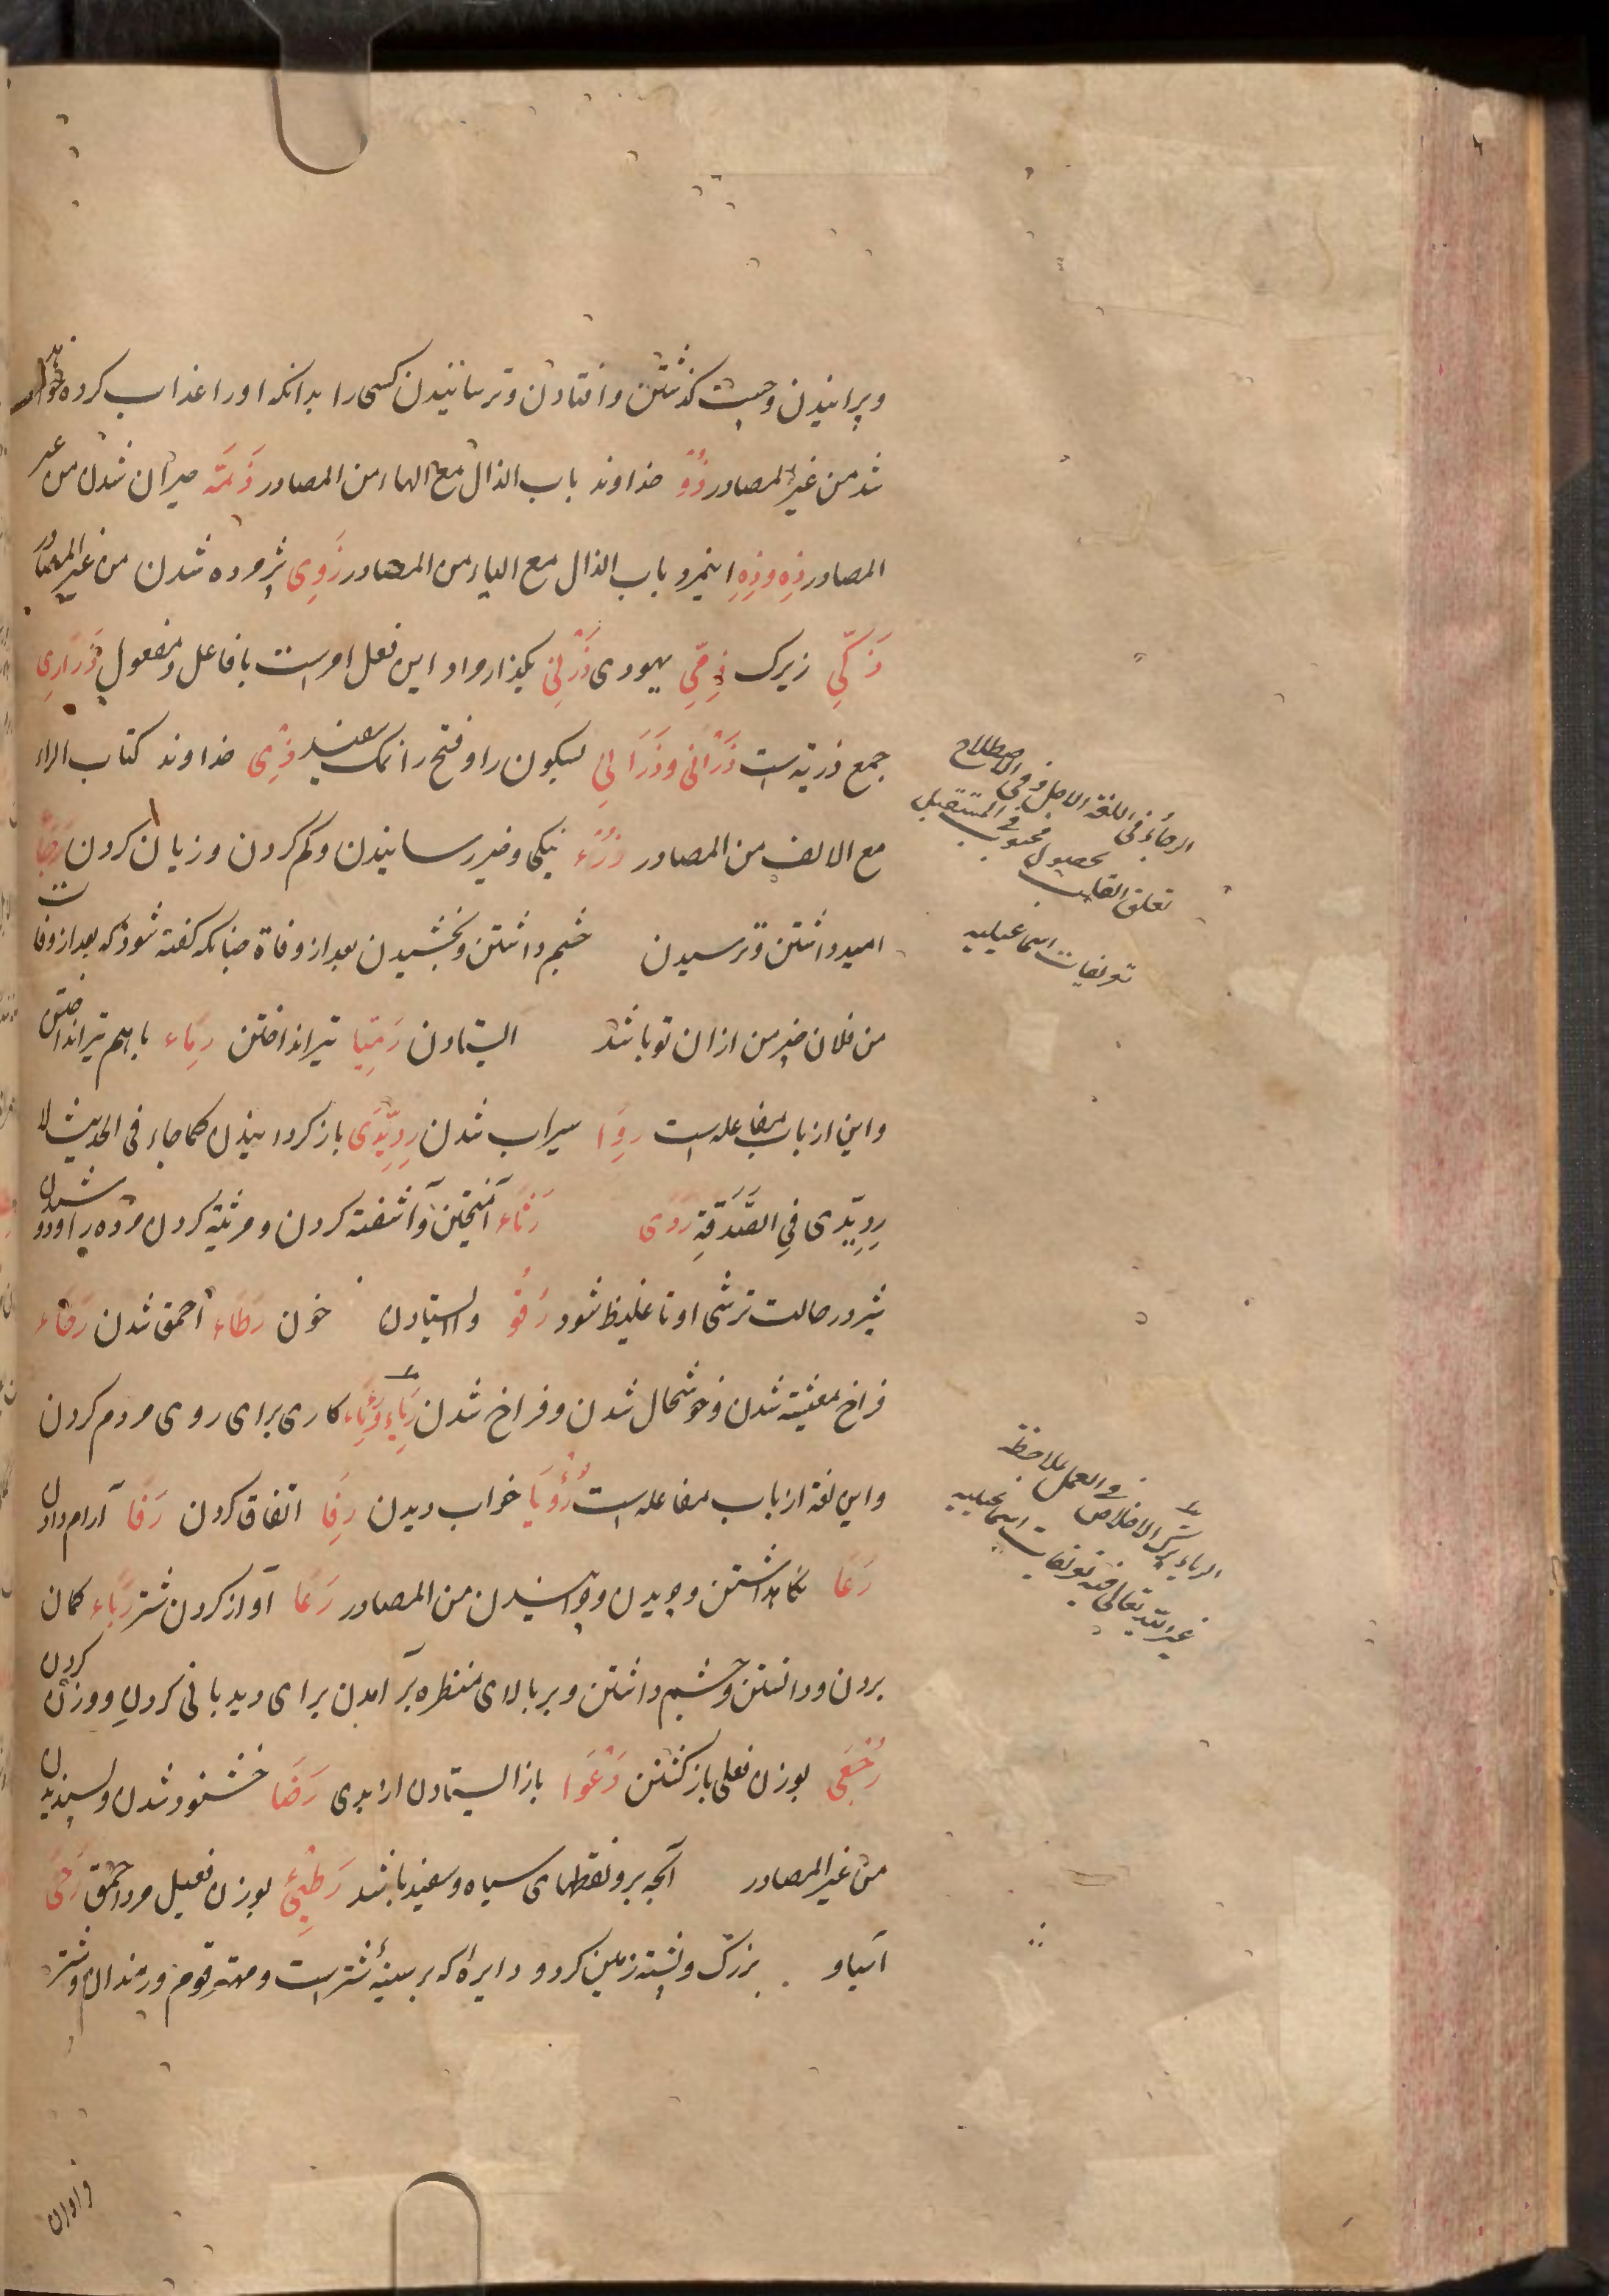 وپرانیدن وچست گذشتن وافتادن وترسانیدن کسی را بدانکه اورا عذاب کرده خواهد
شد من غیر المصادر ذُو خداوند باب الذال مع الهاء من المصادر ذَمَه حیران شدن من غیر
المصادر ذِه وذِهِ اینمرد باب الذال مع الیاء من المصادر ذَوِی پژمرده شدن من غیر المصادر
ذَکِّی زیرک ذِمِّی یهودی ذَرْنِی بگذار مرا و این فعل امرست با فاعل ومفعول ذَرَارِی
جمع ذریة است ذَرْانی وذَرَانِی بسکون را وفتح را نمک سفید ذِی خداوند کتاب الراء
مع الالف من المصادر رُزْء نیکی وخیر رسانیدن وکم کردن وزیان کردن رَجَاء
امید داشتن وترسیدن چشم داشتن وبخشیدن بعد از وفاة چنانکه گفته شود که بعد از وفات
من فلان چیز من ازان تو باشد ایستادن رَمِیّا تیر انداختن رِمَاء باهم تیر انداختن
واین از باب مفاعله است رِوَا سیراب شدن رِدِّیدَی باز گردانیدن کما جاء فی الحدیث لا
رِدِّیدی فِی الصَّدَقَةِ رَدَی رَثَاء آمیختن وآشفته کردن ومرثیه کردن مرده را ودوشیدن
شیر در حالت ترشی او تا غلیظ شود رَقُو وایستادن خون رَطَاء احمق شدن رَخَاء
فراخ معیشة شدن وخوشحال شدن وفراخ شدن رِیَاء ورِئَاء کاری برای روی مردم کردن
واین لغة از باب مفاعله است رُؤْیَا خواب دیدن رِفَا اتفاق کردن رَفَا آرام دادن
رَعَا نگاه داشتن وچریدن وچرانیدن من المصادر رَغَا آواز کردن شتر رَجَاء گمان
بردن ودانستن وچشم داشتن وبر بالای منظره بر آمدن برای دیدبانی کردن ووزن کردن
رُجْعَی بوزن فعلی باز گشتن رَعْوَا باز ایستادن از بدی رَضَا خشنود شدن وپسندیدن
من غیر المصادر آنچه برو نقطهای سیاه وسفید باشد رَطِیْئ بوزن فعیل مرد احمق رَحَی
آسیا و بزرگ وپشته زمین گرد و دایرۀ که بر سینۀ شترست ومهتر قوم ودندان وشتر
الرجاء فی اللغة الامل وفی الاصطلاح
تعلق القلب بحصول محبوب فی المستقبل
تعریفات اسماعیلیه
الریاء ترک الاخلاص فی العمل بملاحظة
غیر الله تعالی فیه تعریفات اسماعیلیه